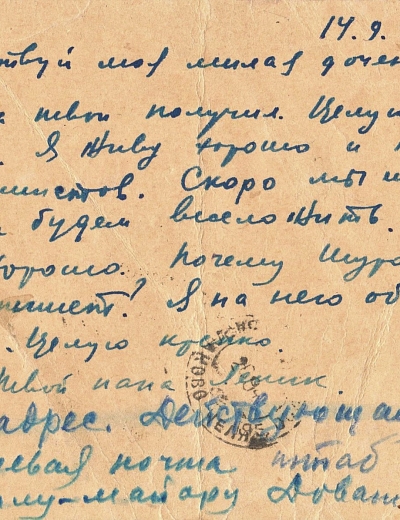 14.9.
твуй моя милая дочен
твои получил. Целу
Я живу хорошо и
шистов. Скоро мы и
будем весело жить.
хорошо. Почему Шура
пишет? Я на него об
Целую крепко.
Твой папа
адрес. Действующая
евая почта штаб
майору Дован